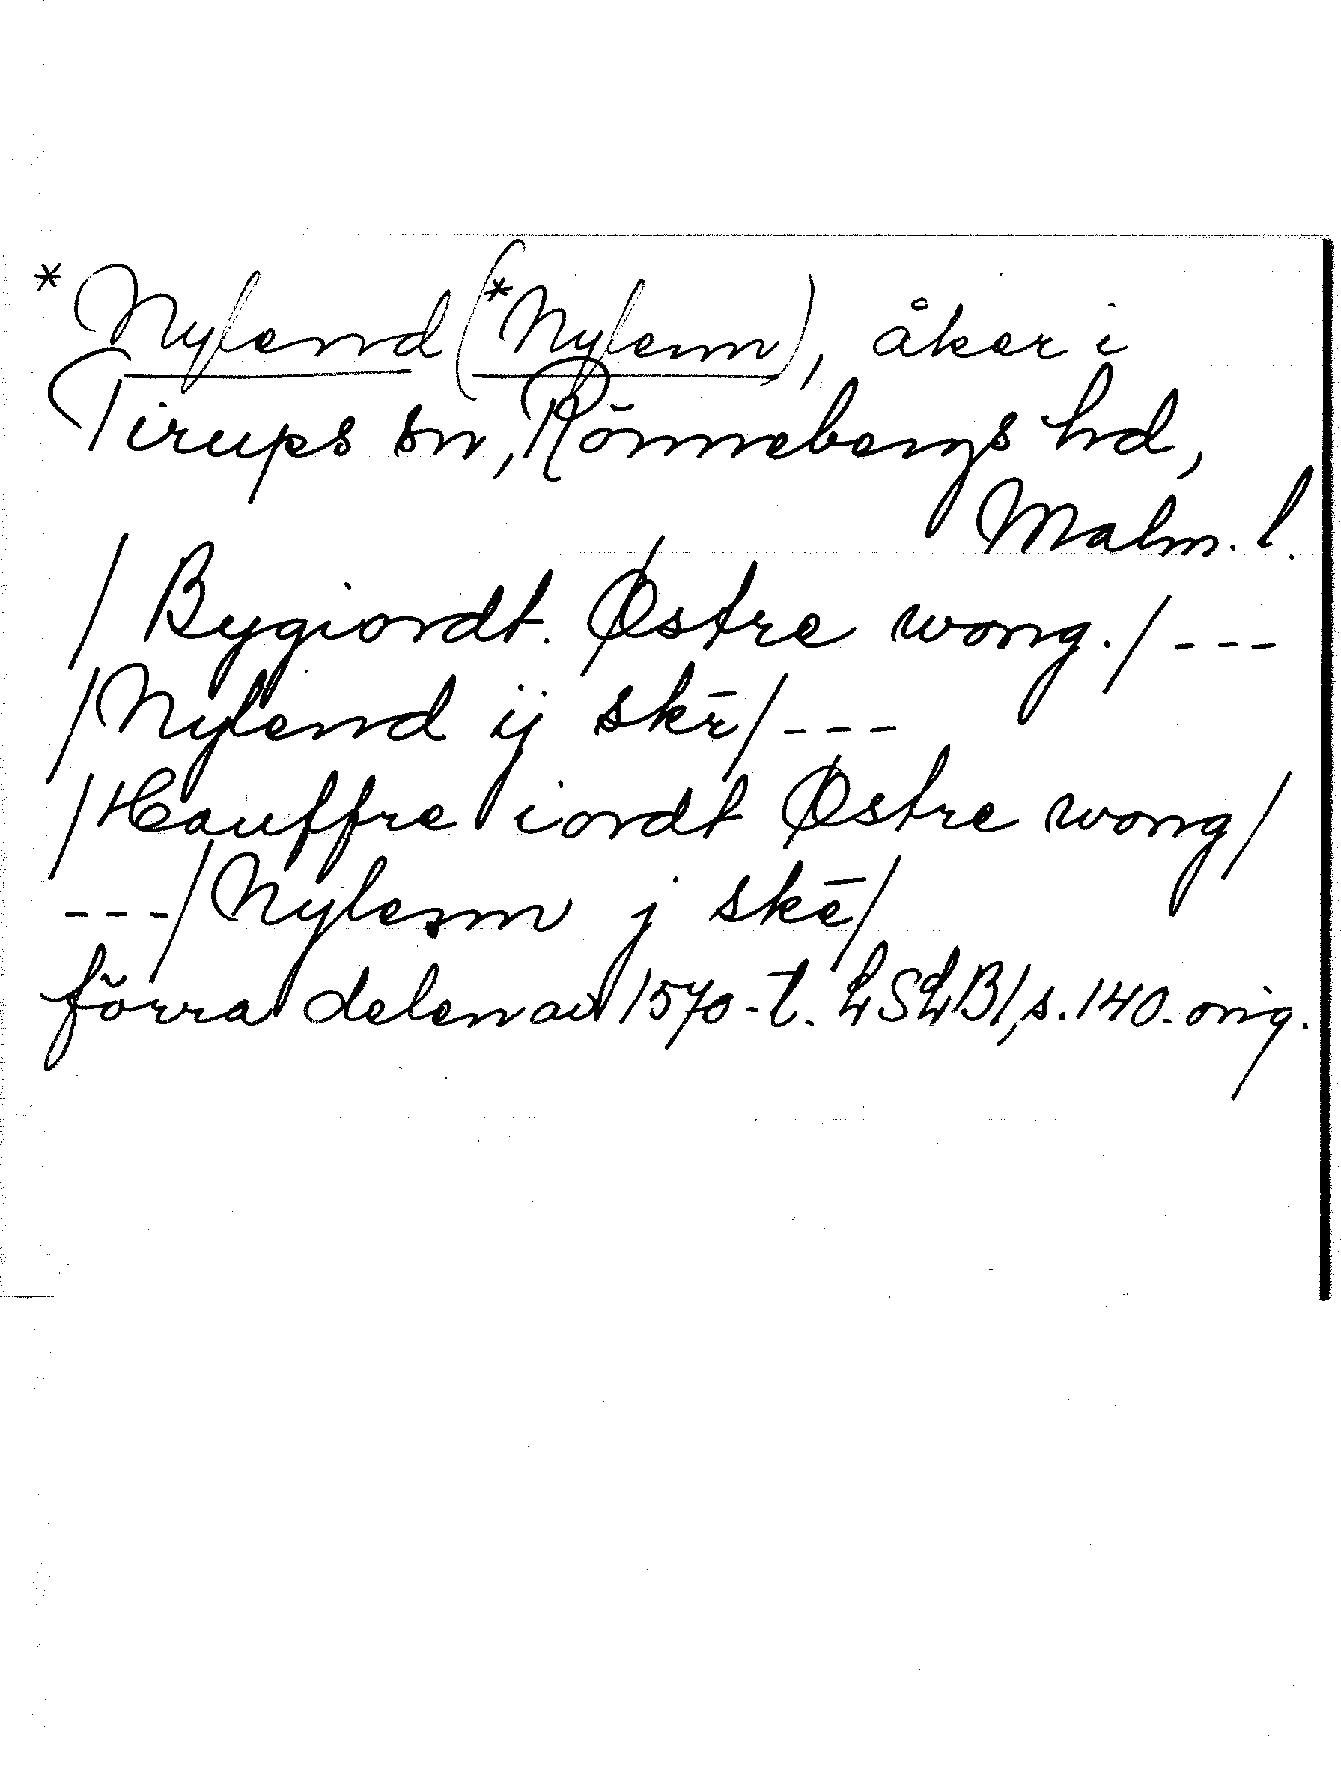 *Nylend (*Nylenn), åker i
Tirups sn, Rönnebergs hd,
Malm. l.
/Bygiordt. Østre wong./ ---
/Nylend ij skē/ ---
/Hauffre iordt Østre wong/
---/Nylenn j skē/
förra delen av 1570-t. LSLB1, s. 140. orig.